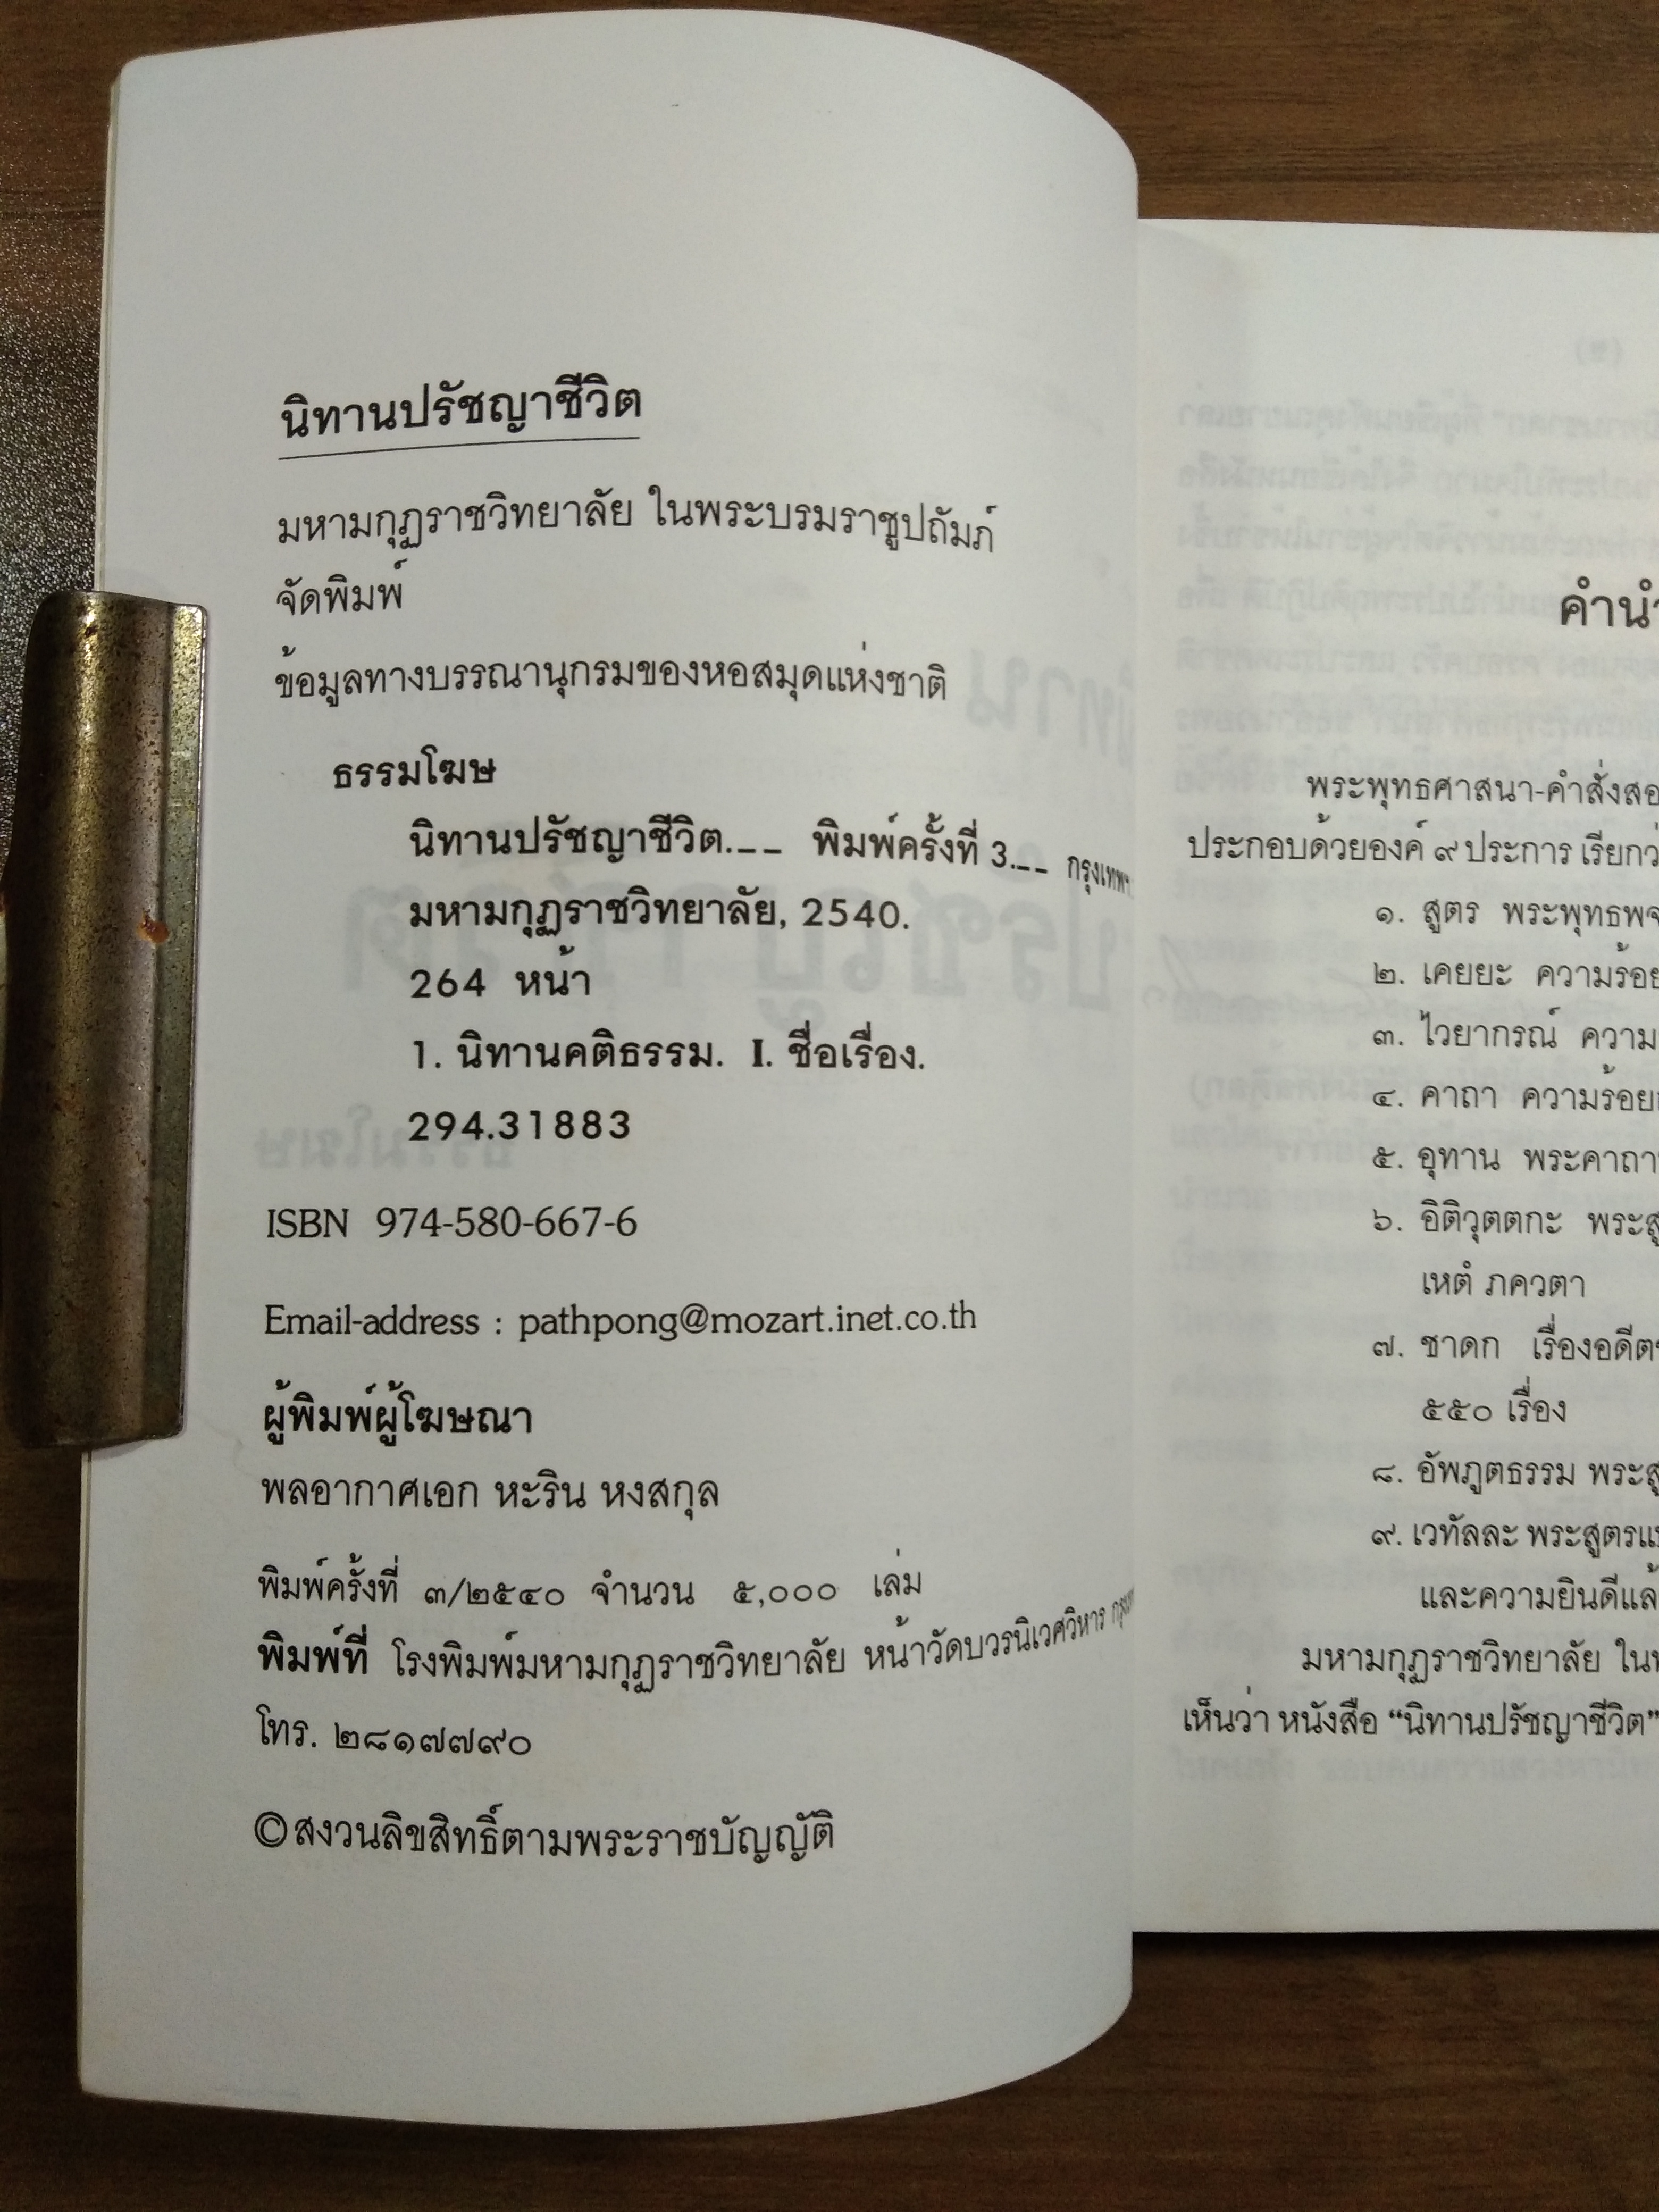 นิทานปรัชญาชีวิต
มหามกุฏราชวิทยาลัย ในพระบรมราชูปถัมภ์
จัดพิมพ์
ข้อมูลทางบรรณานุกรมของหอสมุดแห่งชาติ
ธรรมโฆษ
นิทานปรัชญาชีวิต.-- พิมพ์ครั้งที่ 3.-- กรุงเทพฯ
มหามกุฏราชวิทยาลัย, 2540.
264 หน้า
1. นิทานคติธรรม. I. ชื่อเรื่อง.
294.31883
ISBN 974-580-667-6
Email-address : pathpong@mozart.inet.co.th
ผู้พิมพ์ผู้โฆษณา
พลอากาศเอก หะริน หงสกุล
พิมพ์ครั้งที่ ๓/๒๕๔๐ จำนวน ๕,๐๐๐ เล่ม
พิมพ์ที่ โรงพิมพ์มหามกุฏราชวิทยาลัย หน้าวัดบวรนิเวศวิหาร
โทร. ๒๘๑๗๗๙๐
©สงวนลิขสิทธิ์ตามพระราชบัญญัติ
คำนำ
พระพุทธศาสนา-คำสั่งสอ
ประกอบด้วยองค์ ๙ ประการ เรียกว่
๑. สูตร พระพุทธพจ
๒. เคยยะ ความร้อย
๓. ไวยากรณ์ ความ
๔. คาถา ความร้อย
๕. อุทาน พระคาถา
๖. อิติวุตตกะ พระสู
เหตํ ภควตา
๗. ชาดก เรื่องอดีต
๕๕๐ เรื่อง
๘. อัพภูตธรรม พระสู
๙. เวทัลละ พระสูตรแ
และความยินดีแล้
มหามกุฏราชวิทยาลัย ใน
เห็นว่า หนังสือ “นิทานปรัชญาชีวิต”